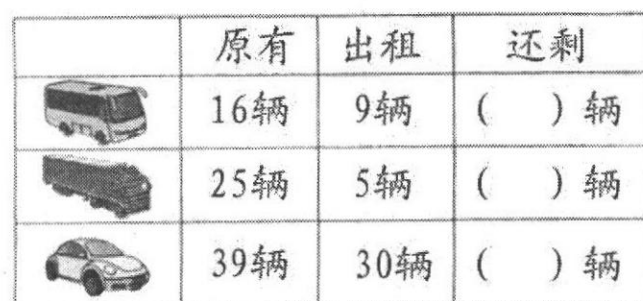 原有 出租 还剩
16辆 9辆 (  )辆
25辆 5辆 (  )辆
39辆 30辆 (  )辆